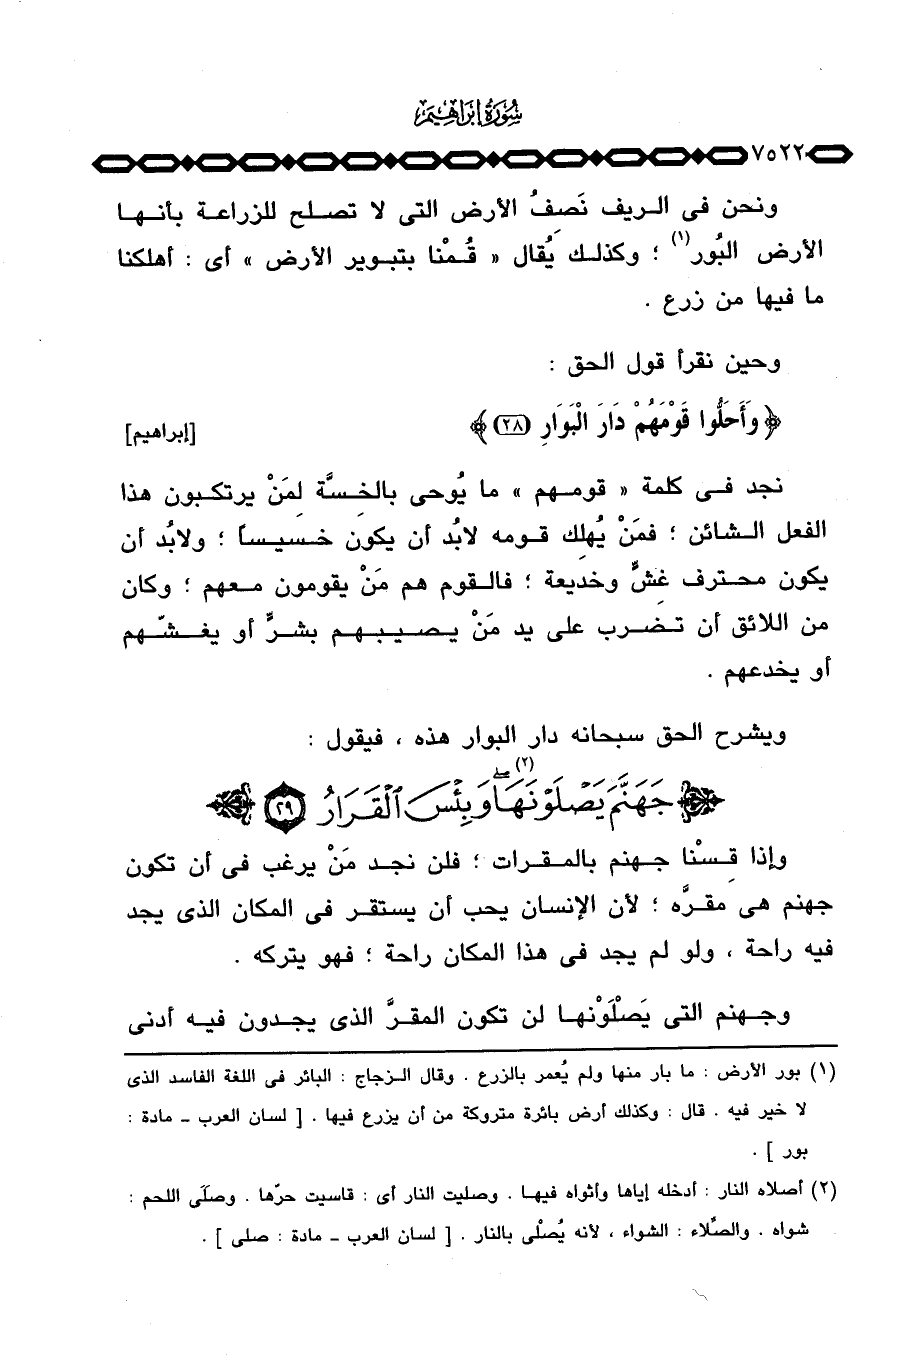 سُورَةُ إِبْرَاهِيمَ
٧٥٢٢
ونحن فى الريف نَصفُ الأرض التى لا تصلح للزراعة بأنها
الأرض البُور(١) ؛ وكذلك يُقال « قُمْنا بتبوير الأرض » أى : أهلكنا
ما فيها من زرع .
وحين نقرأ قول الحق :
﴿ وَأَحَلُّوا قَوْمَهُمْ دَارَ الْبَوَارِ (٢٨) ﴾ [إبراهيم]
نجد فى كلمة « قومهم » ما يُوحى بالخِسَّة لمَنْ يرتكبون هذا
الفعل الشائن ؛ فمَنْ يُهلِك قومه لابُد أن يكون خَسيساً ؛ ولابُد أن
يكون محترف غِشٍّ وخديعة ؛ فالقوم هم مَنْ يقومون معهم ؛ وكان
من اللائق أن تضرب على يد مَنْ يصيبهم بشرٍّ أو يغشّهم
أو يخدعهم .
ويشرح الحق سبحانه دار البوار هذه ، فيقول :
﴿ جَهَنَّمَ يَصْلَوْنَهَا(٢) وَبِئْسَ ٱلْقَرَارُ ٢٩ ﴾
وإذا قِسْنا جهنم بالمقرات ؛ فلن نجد مَنْ يرغب فى أن تكون
جهنم هى مقرَّه ؛ لأن الإنسان يحب أن يستقر فى المكان الذى يجد
فيه راحة ، ولو لم يجد فى هذا المكان راحة ؛ فهو يتركه .
وجهنم التى يَصلَوْنها لن تكون المقرَّ الذى يجدون فيه أدنى
(١) بور الأرض : ما بار منها ولم يُعمر بالزرع . وقال الزجاج : البائر فى اللغة الفاسد الذى
لا خير فيه . قال : وكذلك أرض بائرة متروكة من أن يزرع فيها . [ لسان العرب - مادة :
بور ] .
(٢) أصلاه النار : أدخله إياها وأثواه فيها . وصليت النار أى : قاسيت حرّها . وصلَى اللحم :
شواه . والصِّلاء : الشواء ، لأنه يُصْلَى بالنار . [ لسان العرب - مادة : صلى ] .